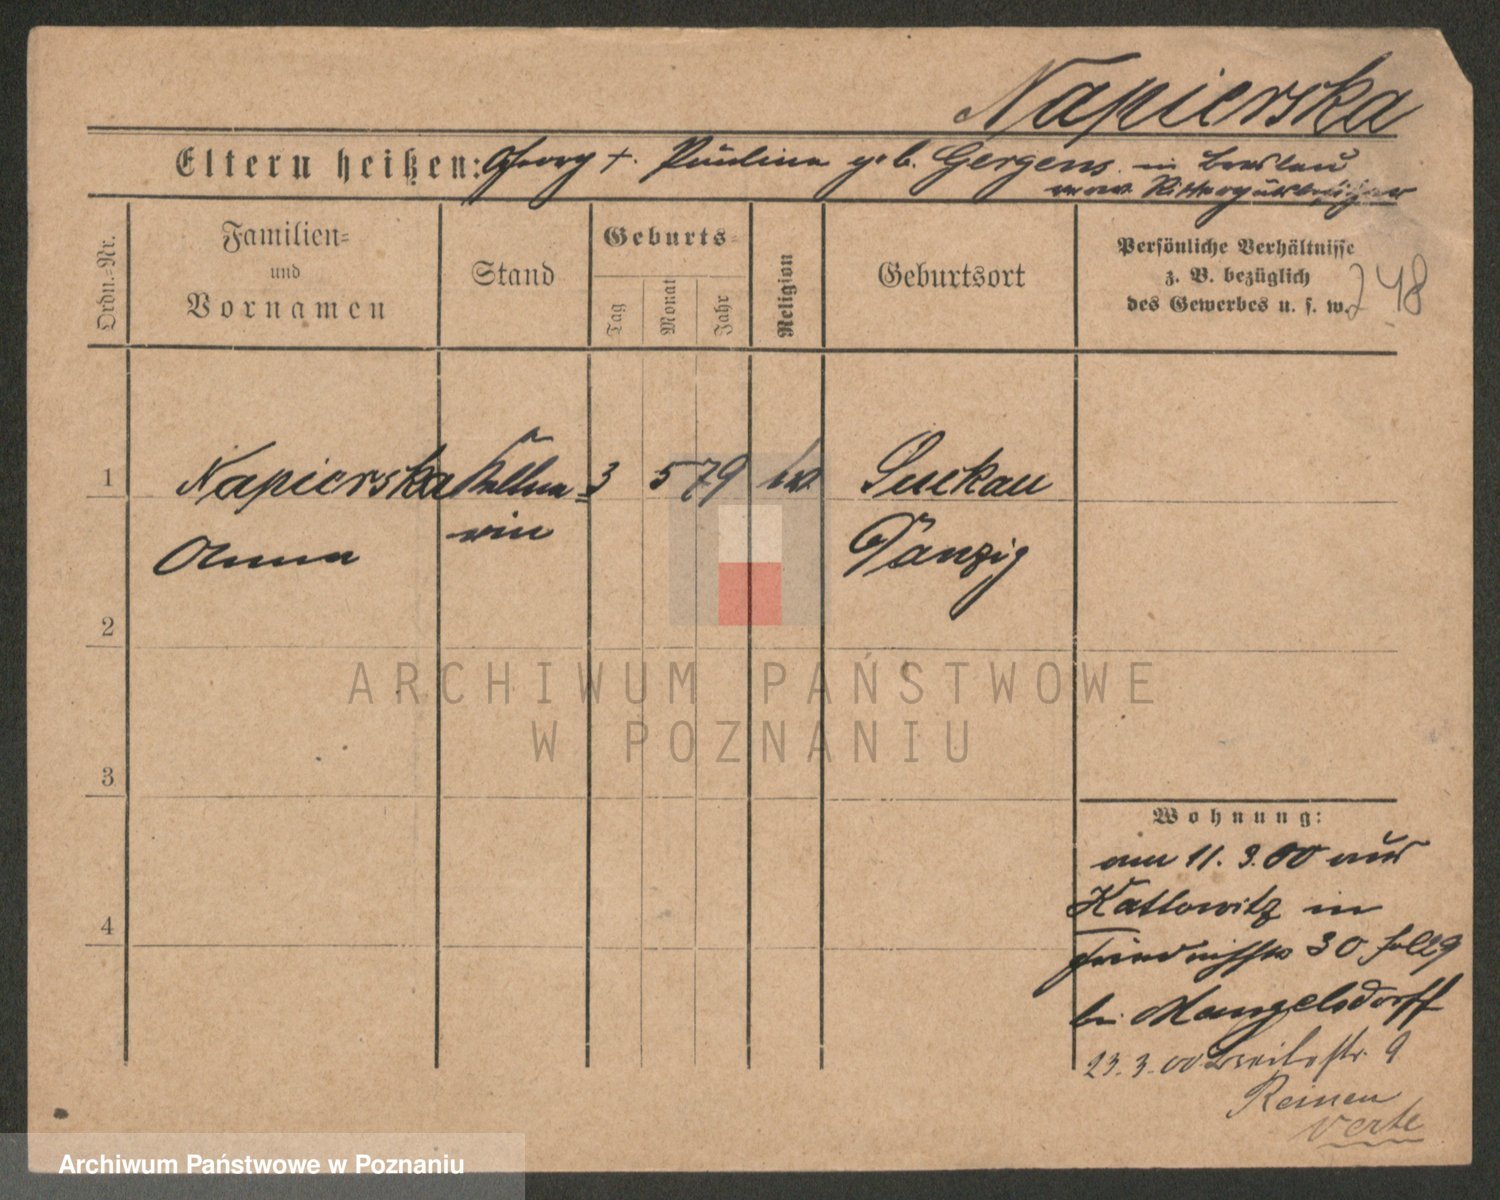 Napierska
Eltern heißen: Georg †. Paulina geb. Gergens in Breslau
war Rittergutsbesitzer
Ordn.-Nr.
Familien-
und
Vornamen
Stand
Geburts-
Tag
Monat
Jahr
Religion
Geburtsort
Persönliche Verhältnisse
z. B. bezüglich
des Gewerbes u. s. w.
748
1 Napierska Kellne- 3 5 79 Suckau
Anna rin Danzig
2
3
4
Wohnung:
am 11. 3. 00 aus
Kattowitz in
30
bei Mangelsdorff
23. 3. 00 Breitestr. 9
Reimen
verte
ARCHIWUM PAŃSTWOWE
W POZNANIU
Archiwum Państwowe w Poznaniu